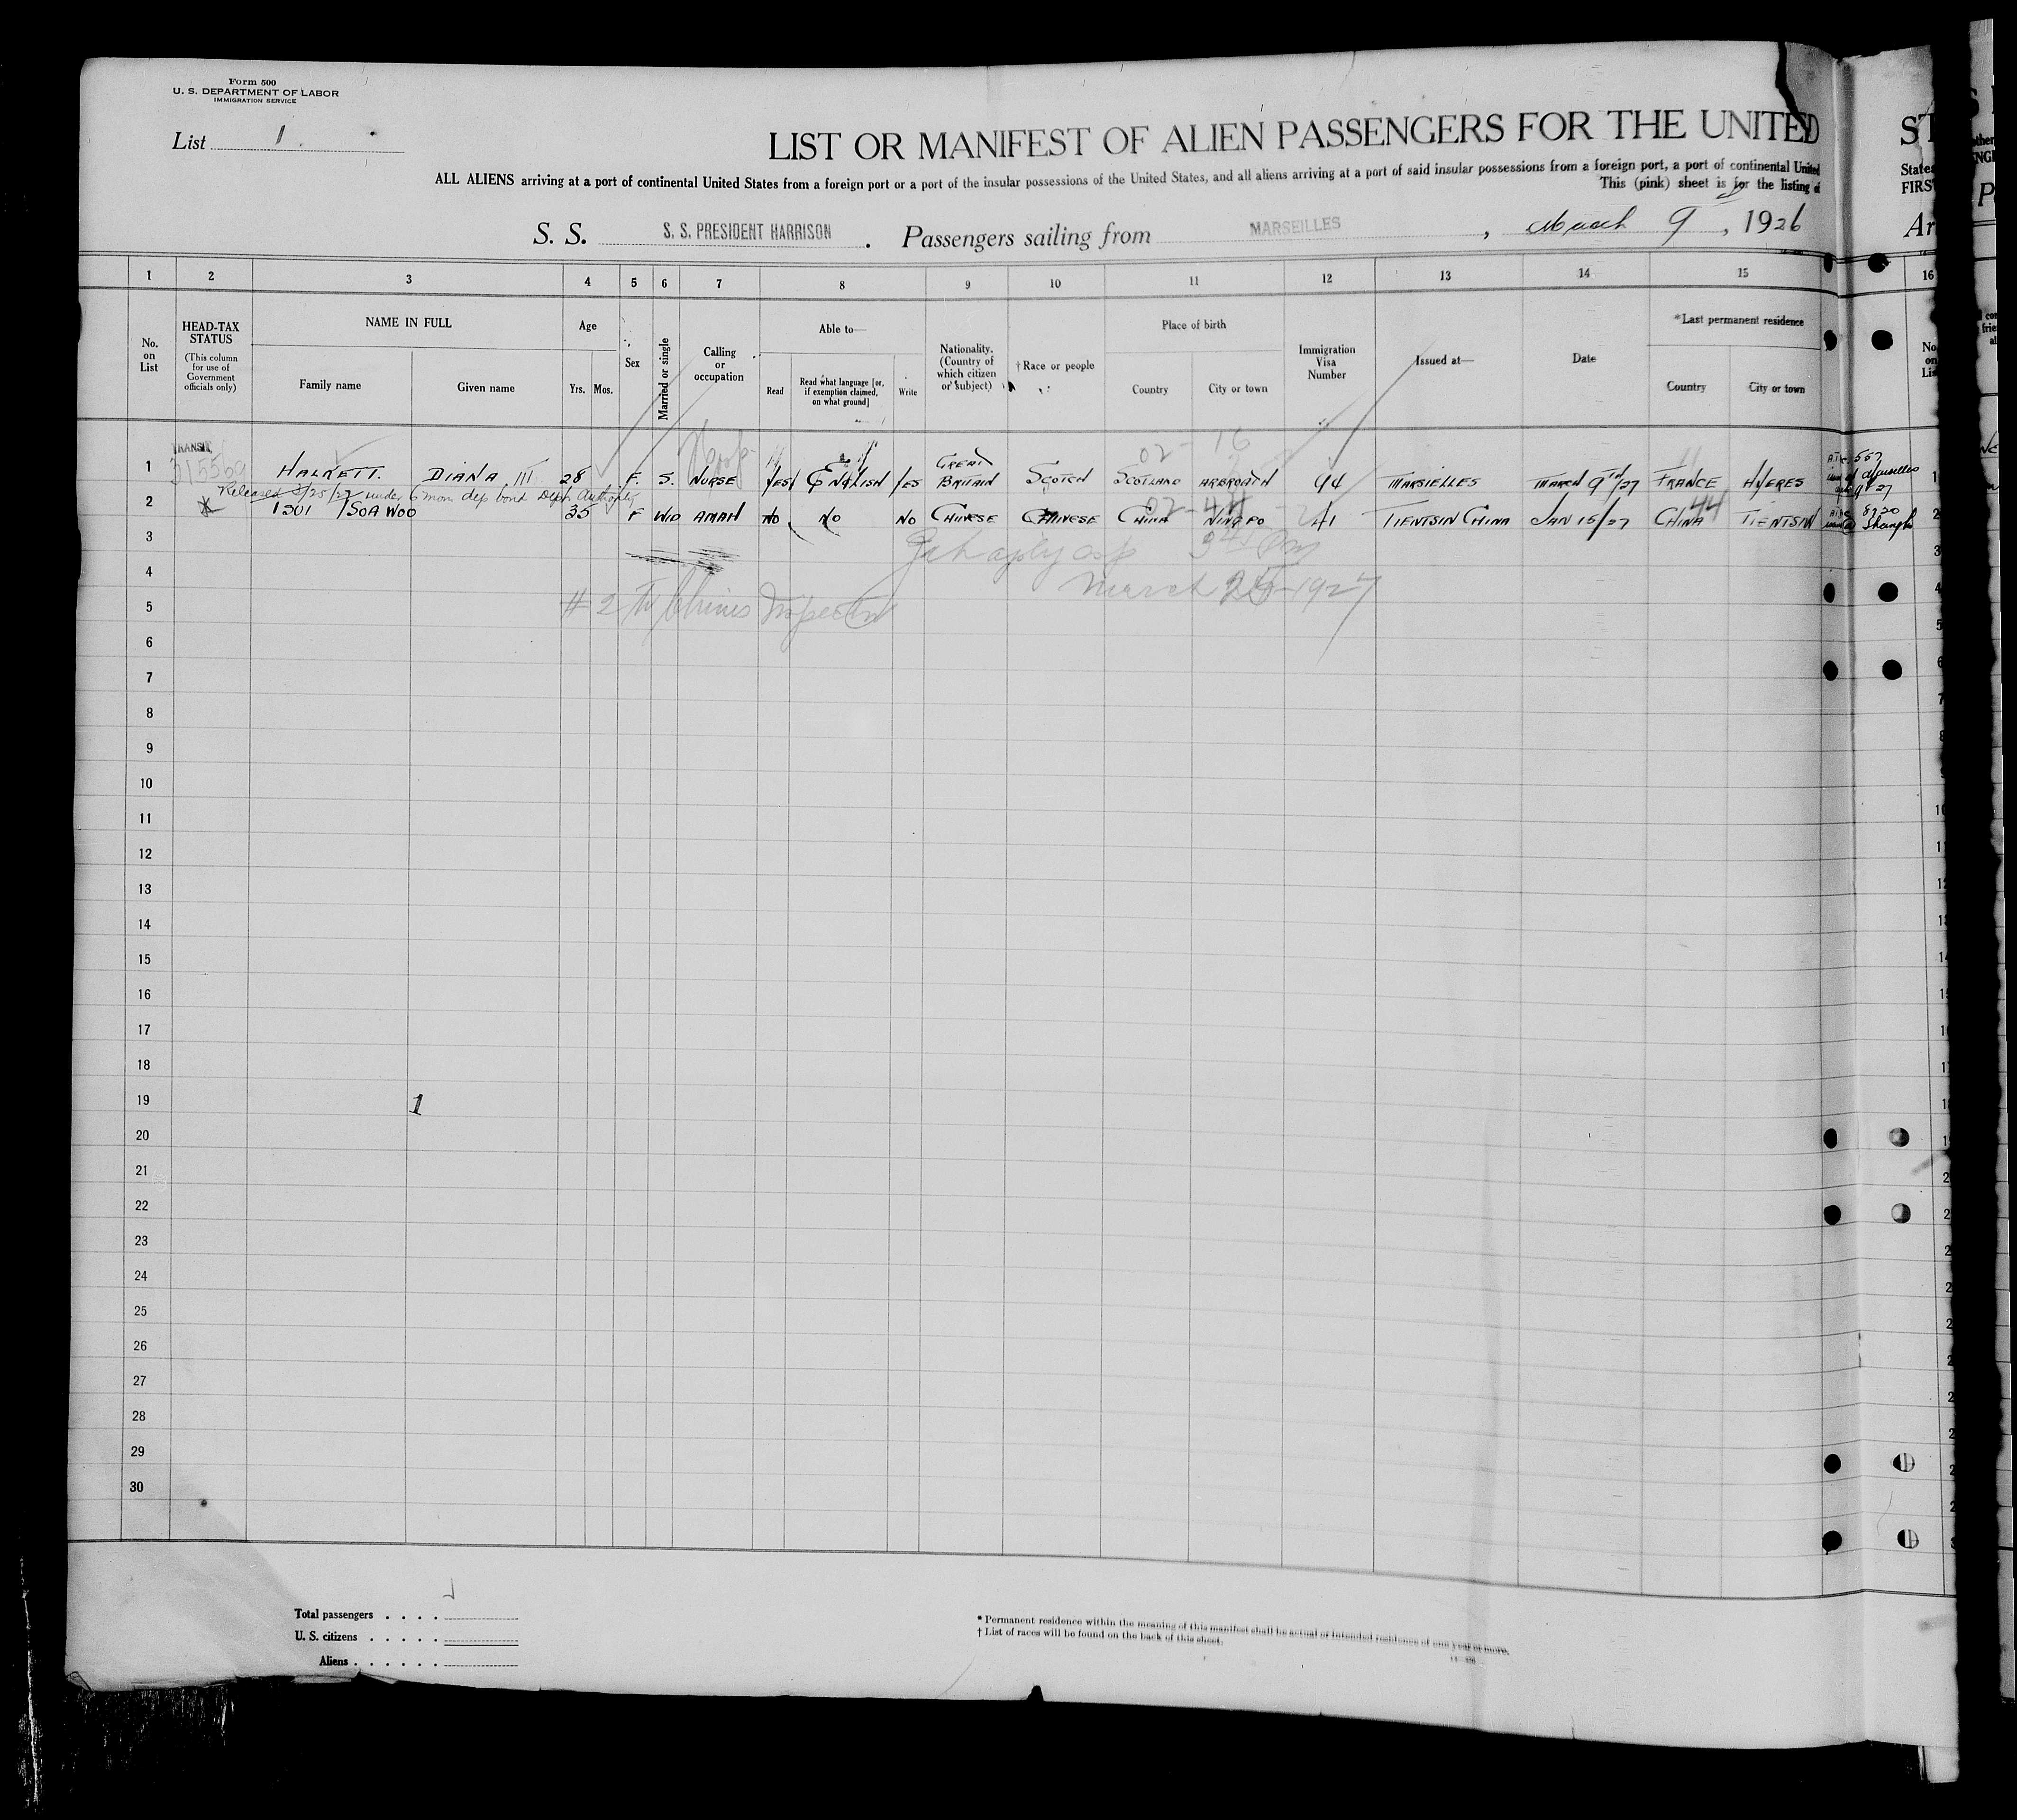 Form 500
U. S. DEPARTMENT OF LABOR
IMMIGRATION SERVICE
List 1.
LIST OR MANIFEST OF ALIEN PASSENGERS FOR THE UNITED ST
ALL ALIENS arriving at a port of continental United States from a foreign port or a port of the insular possessions of the United States, and all aliens arriving at a port of said insular possessions from a foreign port, a port of continental United States
This (pink) sheet is for the listing of FIRS
S. S. S. S. PRESIDENT HARRISON . Passengers sailing from MARSEILLES , March 9 , 1926 Ar
1 2 3 4 5 6 7 8 9 10 11 12 13 14 15 16
No. on List
HEAD-TAX STATUS
(This column for use of Government officials only)
NAME IN FULL
Family name Given name
Age
Yrs. Mos.
Sex
Married or single
Calling or occupation
Able to—
Read Read what language [or, if exemption claimed, on what ground] Write
Nationality. (Country of which citizen or subject)
† Race or people
Place of birth
Country City or town
Immigration Visa Number
Issued at—
Date
*Last permanent residence
Country City or town
TRANSIT
02- 16
1 315569 HALKETT. DIANA, 28 F. S. NURSE YES ENGLISH YES GREAT BRITAIN SCOTCH SCOTLAND ARBROATH 94 MARSIELLES MARCH 9TH/27 FRANCE HYERES
Released 3/25/27 under 6 mon dep bond Dept. Authority
2 TSUI TSOA WOO 35 F WID AMAH NO NO NO CHINESE CHINESE CHINA NINGPO 41 TIENTSIN CHINA JAN 15/27 CHINA TIENTSIN
3
4
March 25-1927
5 # 2 Chines Inspector
6
7
8
9
10
11
12
13
14
15
16
17
18
19 1
20
21
22
23
24
25
26
27
28
29
30
Total passengers . . . .
U. S. citizens . . . . .
Aliens . . . . . .
* Permanent residence within the meaning of this manifest shall be actual or intended residence of one year or more.
† List of races will be found on the back of this sheet.